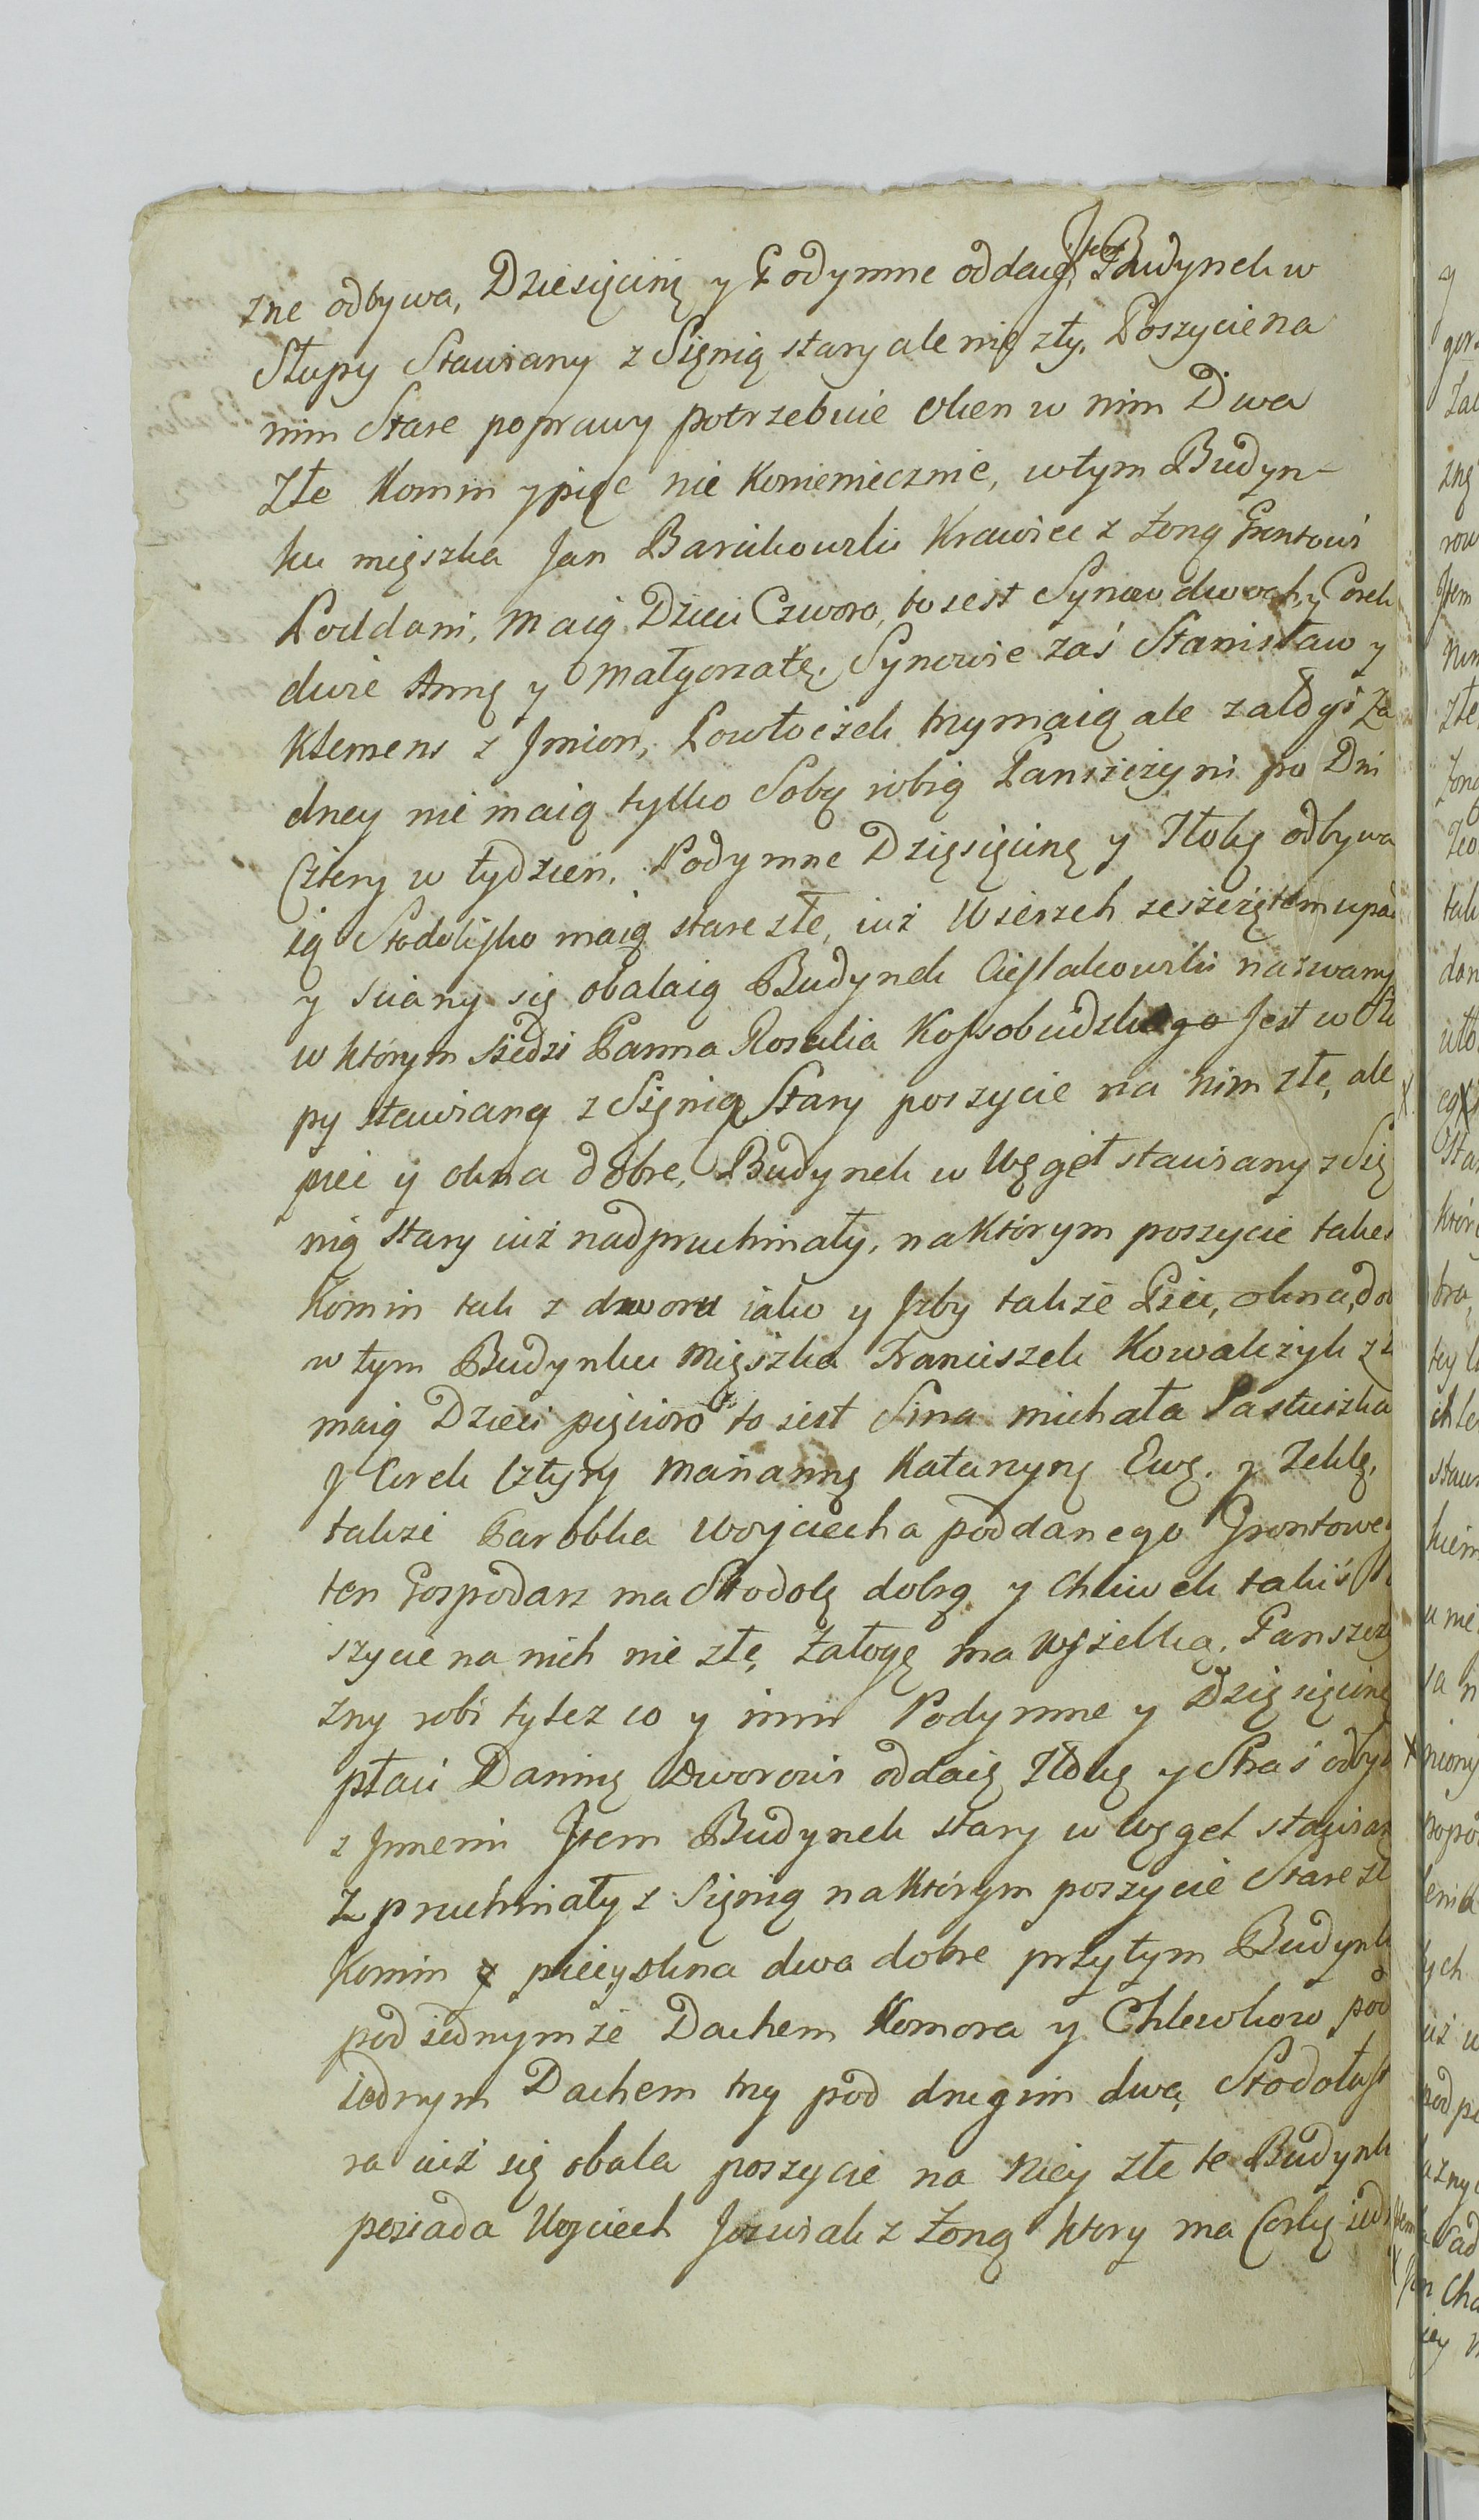 zne odbywa, Dziesięcinę y Podymne oddaią, Item Budynek w
Słupy Stawiany z Sięnią stary ale nie zły, Poszycie na
nim Stare poprawy potrzebuie Oken w nim Dwa
Złe Komin y piec nie Koniemiecznie, w tym Budyn-
ku mięszka Jan Krawiec z Zoną Grontowi
Poddani, Maią Dzieci Czworo, to iest Synow dwoch, y Corek
dwie Annę y Małgorzatę, Synowie zaś Stanisław y
Klemens z Jmion, Powłoczek trzymaią ale załogi Za
dney nie maią tylko Sobą robią Panszczyzni po Dni
Cztery w tydzien, Podymne Dzięsięcinę y Tłokę odbywa
ią Stodolisko maią stare złe, iuż Wierzch zeszczętem upad
y sciany się obalaią Budynek Cieslakowski nazwany
w którym siedzi Panna Rozalia Kossobudzkago Jest w Słu
py stawiany z Sięnią Stary poszycie na nim złe, ale
piec y okna dobre, Budynek w Węgęł stawiany z Się
nią stary iuż nadpruchniały, na którym poszycie takież
Komin tak z dworu iako y Jzby także Piec, okna, do
w tym Budynku Mięszka Franciszek Kowalczyk z Z
maią Dzieci pięcioro to iest Sina michała Pastuszka
J Corek Cztyry Mariannę Katarzynę Ewę, y Teklę,
takze Parobka Woyciecha poddanego Grontoweg
ten Gospodarz ma Stodołę dobrą y Chliwek takiś
szycie na nich nie złe, Załogę ma Wszelką, Panszczy
zny robi tytez co y inni Podymne y Dzięsięcinę
płaci Daninę Dworowi oddaię Tłokę y Straś odby
z Jnnemi Jtem Budynek stary w Węgeł stawian
Zpruchniały z Sięnią na którym poszycie Stare zł
Komin y piec y okna dwa dobre przytym Budynk
pod iednymże Dachem Komora y Chlewkow pod
iednym Dachem trzy pod drugim dwa, Stodoła st
ra iuż się obala poszycie na Niey złe te Budynk
posiada Woyciech Jozwiak z Zoną ktory ma Corkę iedn